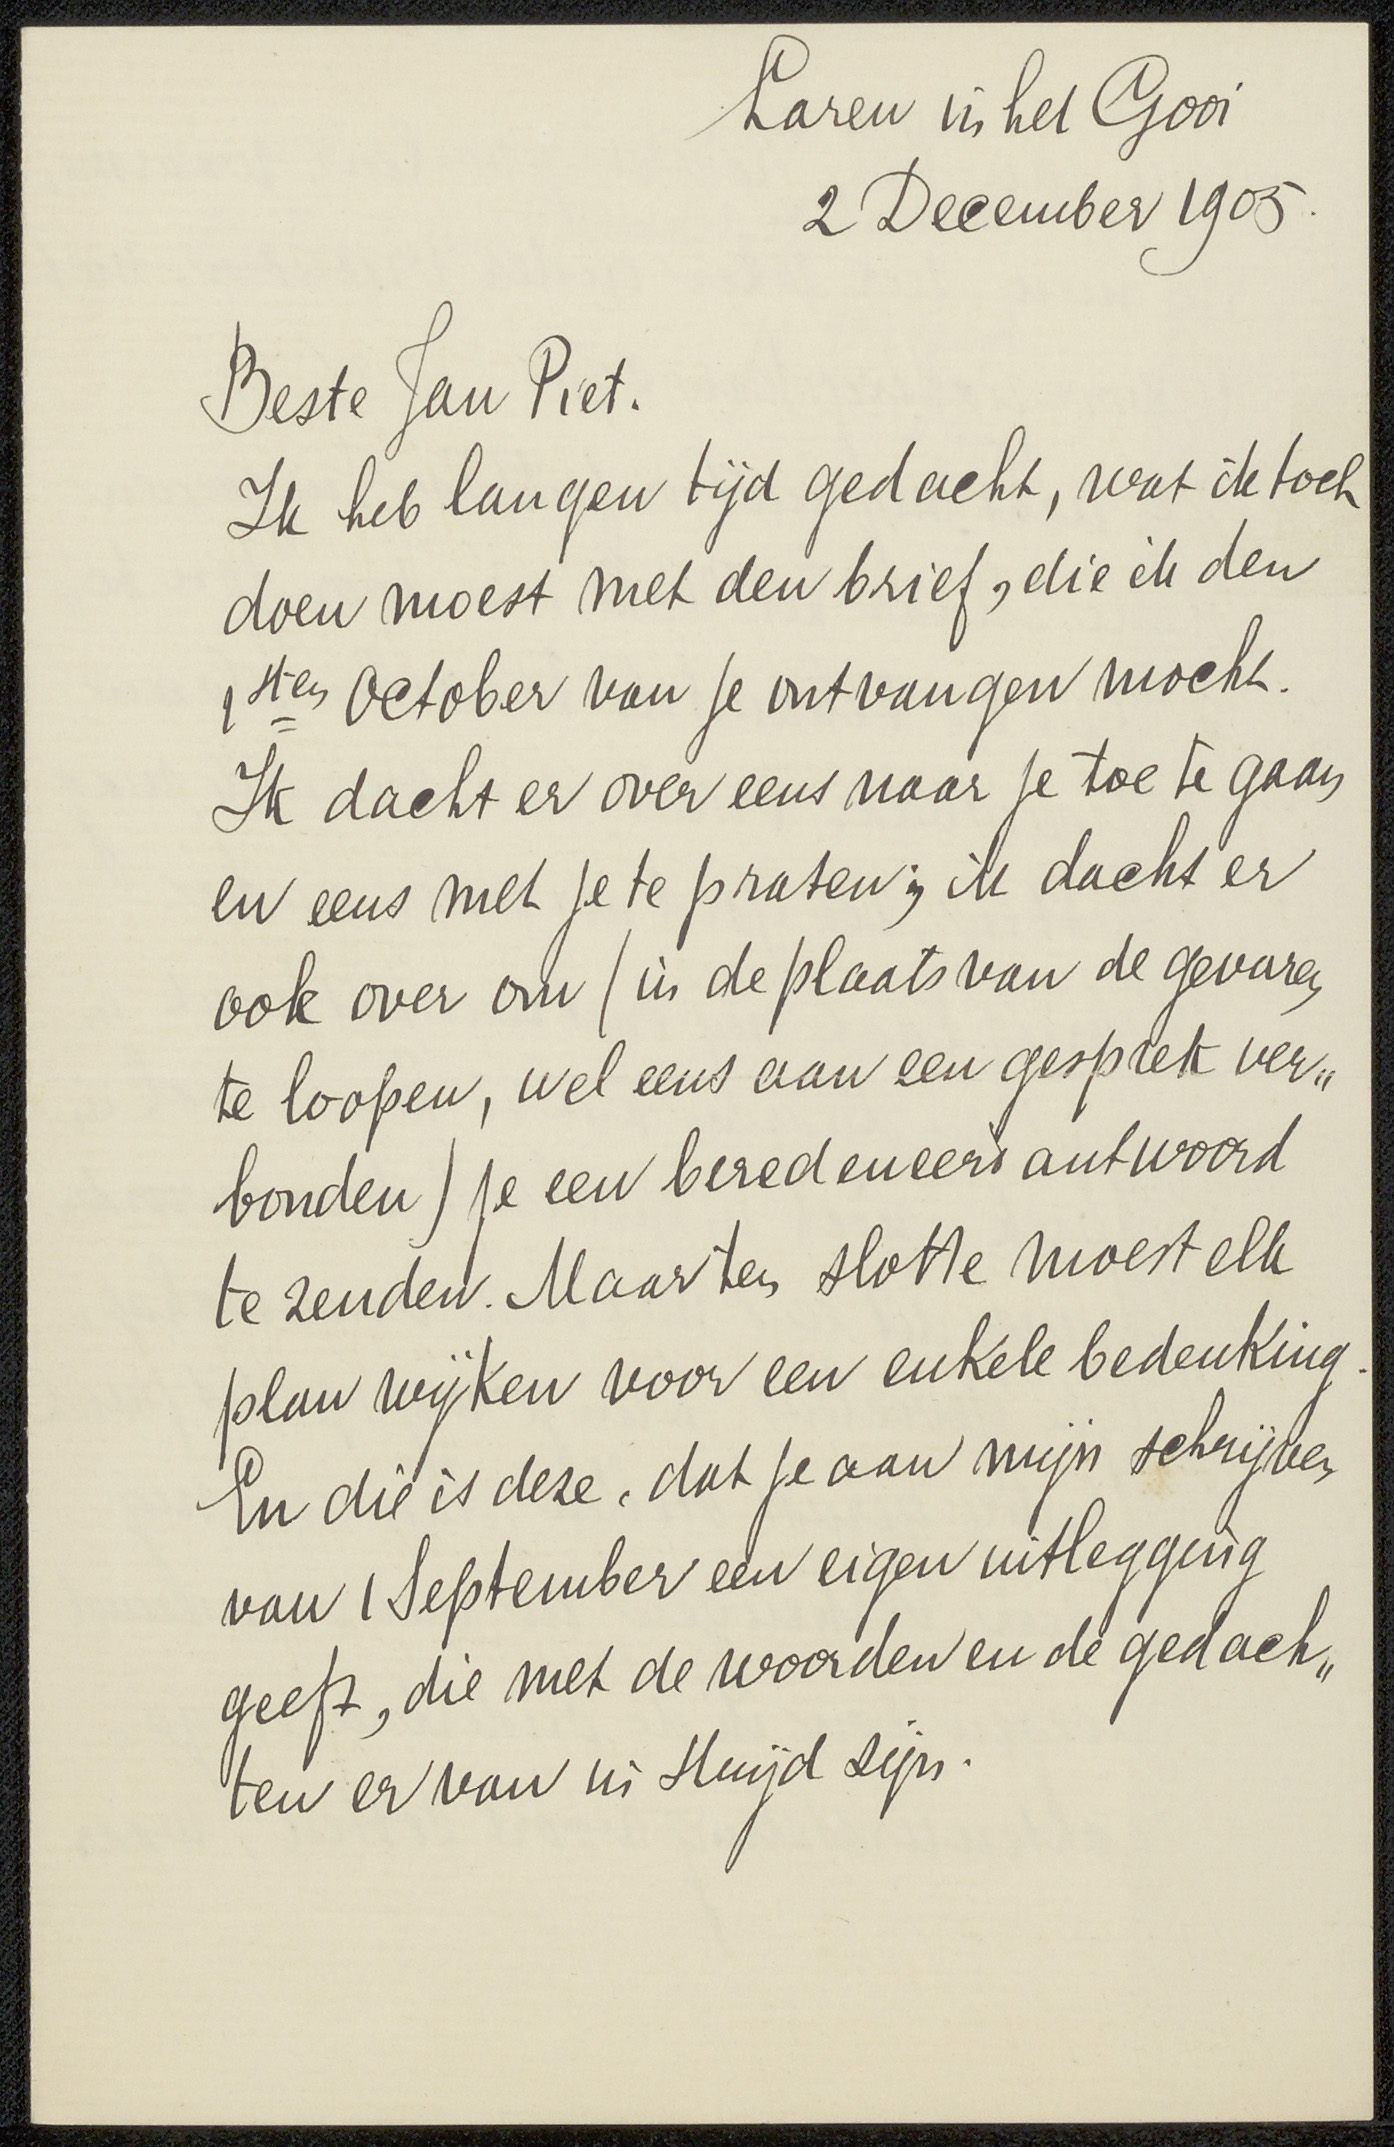 Laren in het Gooi
2 December 1905.
Beste Jan Piet.
Ik heb langen tijd gedacht, wat ik toch
doen moest met den brief, die ik den
1sten October van je ontvangen mocht.
Ik dacht er over eens naar je toe te gaan
en eens met je te praten; ik dacht er
ook over om (in de plaats van de gevaren
te loopen, wel eens aan een gesprek ver„
bonden) je een beredeneerd antwoord
te zenden. Maar ten slotte moest elk
plan wijken voor een enkele bedenking.
En die is deze, dat je aan mijn schrijven
van 1 September een eigen uitlegging
geeft, die met de woorden en de gedach„
ten er van in strijd zijn.